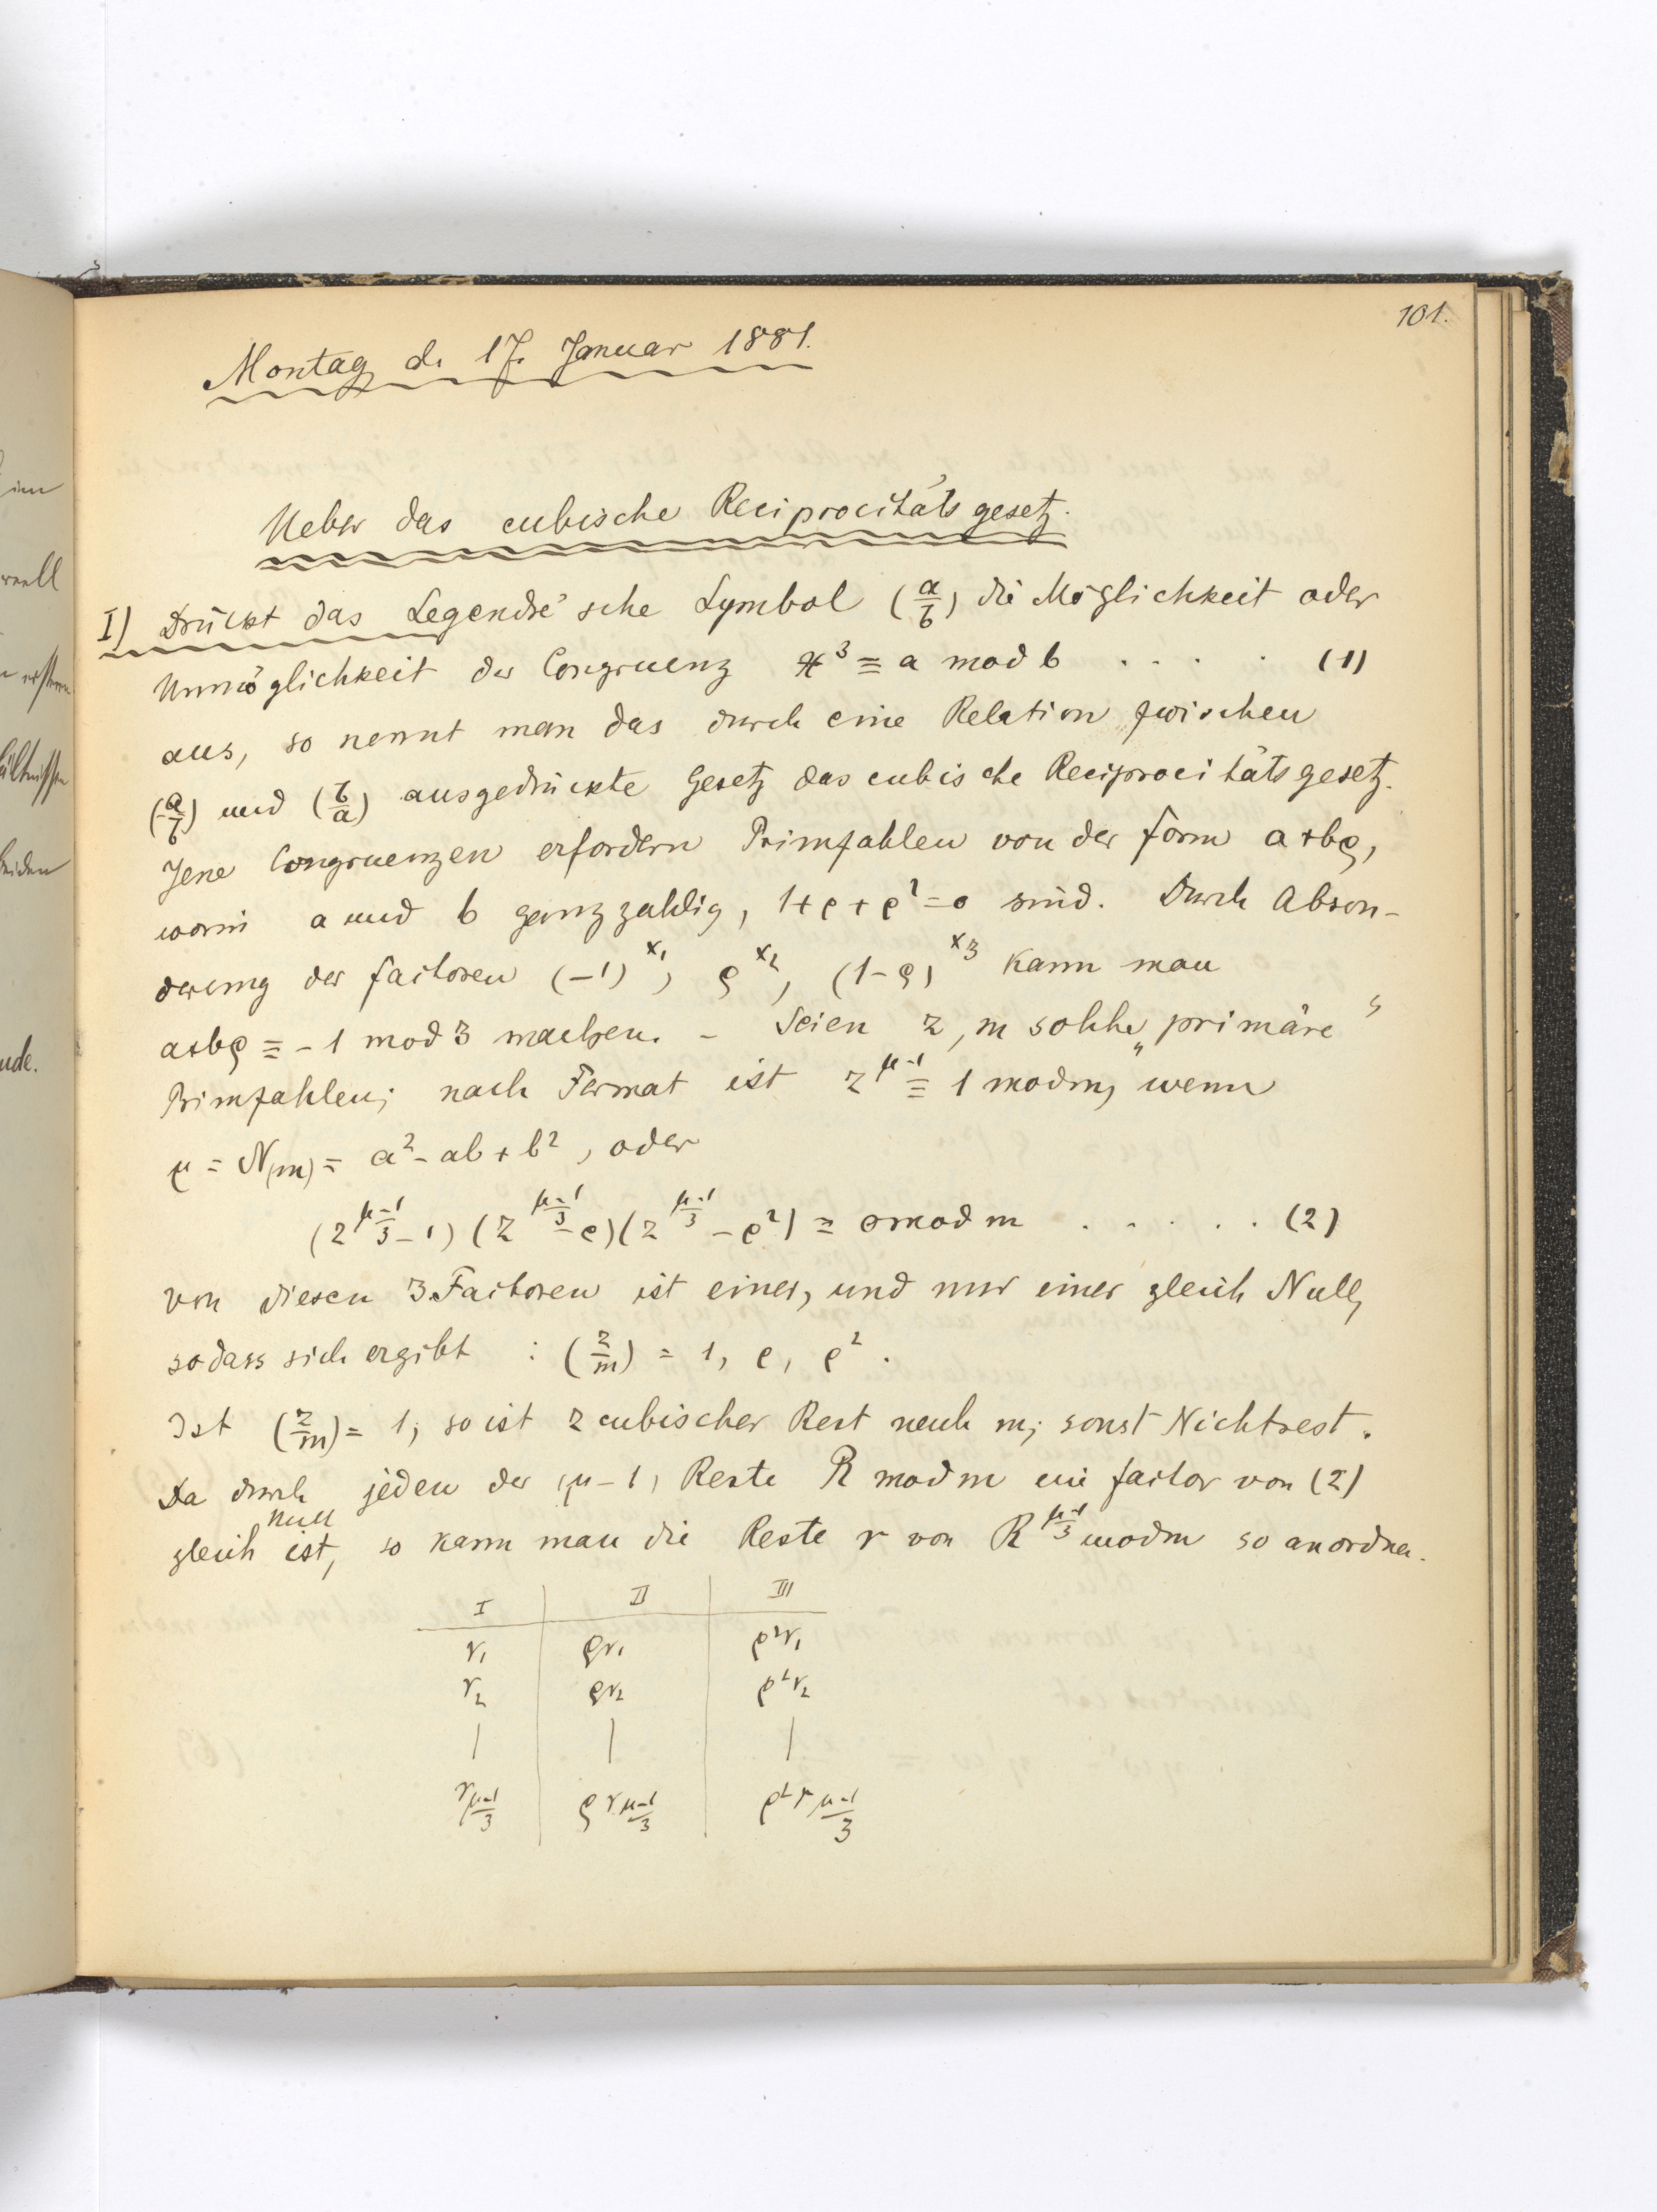 101.
Montag d. 17. Januar 1881.
Ueber das cubische Reciprocitätsgesetz.
I) Drückt das Legendre'sche Symbol (a/b) die Möglichkeit oder
Unmöglichkeit der Congruenz x³ ≡ a mod b . . . . (1)
aus, so nennt man das durch eine Relation zwischen
(a/b) und (b/a) ausgedrückte Gesetz das cubische Reciprocitätsgesetz.
Jene Congruenzen erfordern Primzahlen von der Form a+bρ,
worin a und b ganzzahlig, 1+ρ+ρ²=0 sind. Durch Abson-
derung der Factoren (-1)^x₁, ρ^x₂, (1-ρ)^x₃ kann man
a+bρ ≡ -1 mod 3 machen. - Seien z, m solche „primäre“
Primzahlen; nach Fermat ist z^(μ-1) ≡ 1 mod m, wenn
μ = N(m) = a²-ab+b², oder
(z^((μ-1)/3) - 1) (z^((μ-1)/3) - ρ) (z^((μ-1)/3) - ρ²) ≡ 0 mod m . . . . . (2)
von diesen 3 Factoren ist einer, und nur einer gleich Null,
sodass sich ergibt : (z/m) = 1, ρ, ρ².
Ist (z/m) = 1, so ist z cubischer Rest nach m; sonst Nichtrest.
Da durch jeden der (μ-1) Reste R mod m ein Factor von (2)
null
gleich ist, so kann man die Reste r von R^((μ-1)/3) mod m so anordnen.
I | II | III
r₁ | ρr₁ | ρ²r₁
r₂ | ρr₂ | ρ²r₂
| | |
r_((μ-1)/3) | ρr_((μ-1)/3) | ρ²r_((μ-1)/3)